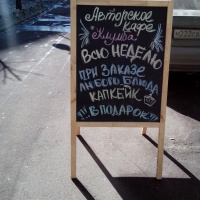 Авторское
кафе
Клумба
ВСЮ НЕДЕЛЮ
ПРИ ЗАКАЗЕ
ЛЮБОГО БЛЮДА
КАПКЕЙК
В ПОДАРОК!!!